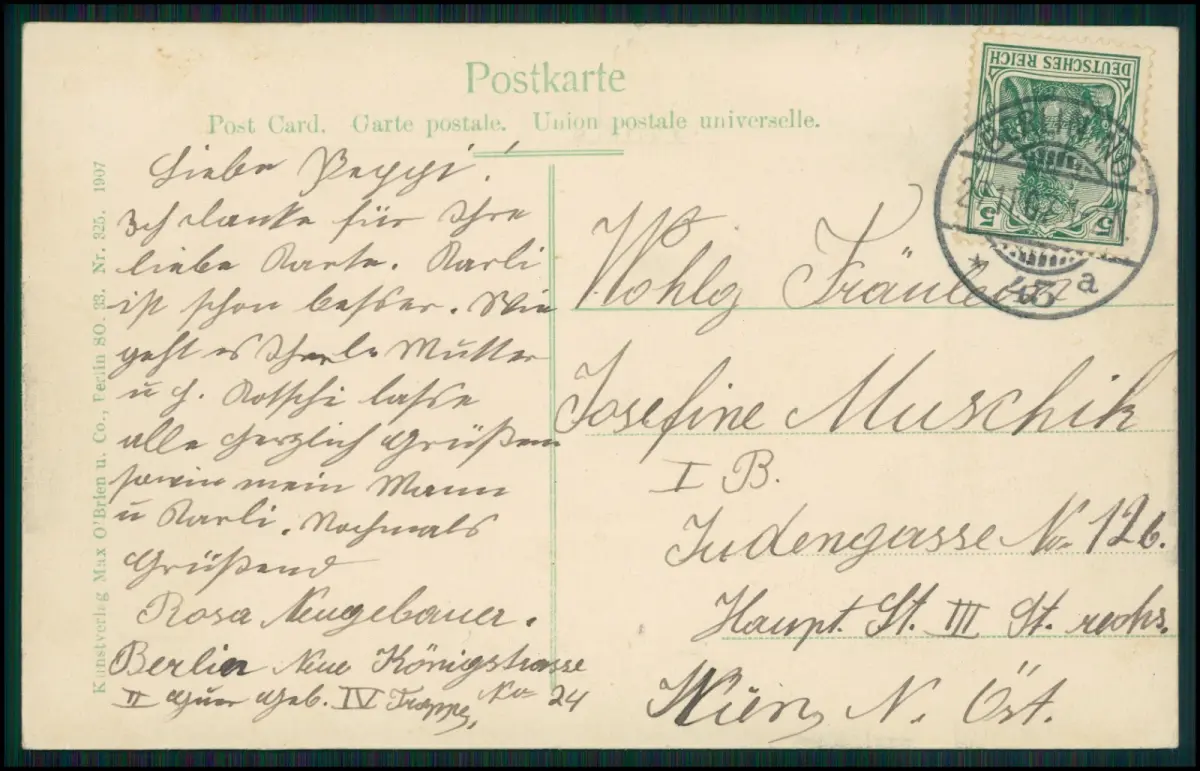 Postkarte
Post Card. Carte postale. Union postale universelle.
Kunstverlag Max O'Brien u. Co., Berlin SO. 33. Nr. 325. 1907
Liebe Peppi!
Ich danke für Ihre
liebe Karte. Karli
ist schon besser. Wie
geht es Mutter
u H. lasse
alle herzlich Grüßen
sowie mein Mann
u Karli. Nochmals
Grüßend
Rosa Neugebauer.
Berlin Neue Königstrasse
II Quer Geb. IV Treppe, No 24
DEUTSCHES REICH
5 5
BERLIN NO
11.07.
* 43 a
Wohlg Fräulein
Josefine Muschik
I B.
Judengasse No 126.
Haupt. St. III St. rechs.
Wien, N. Öst.